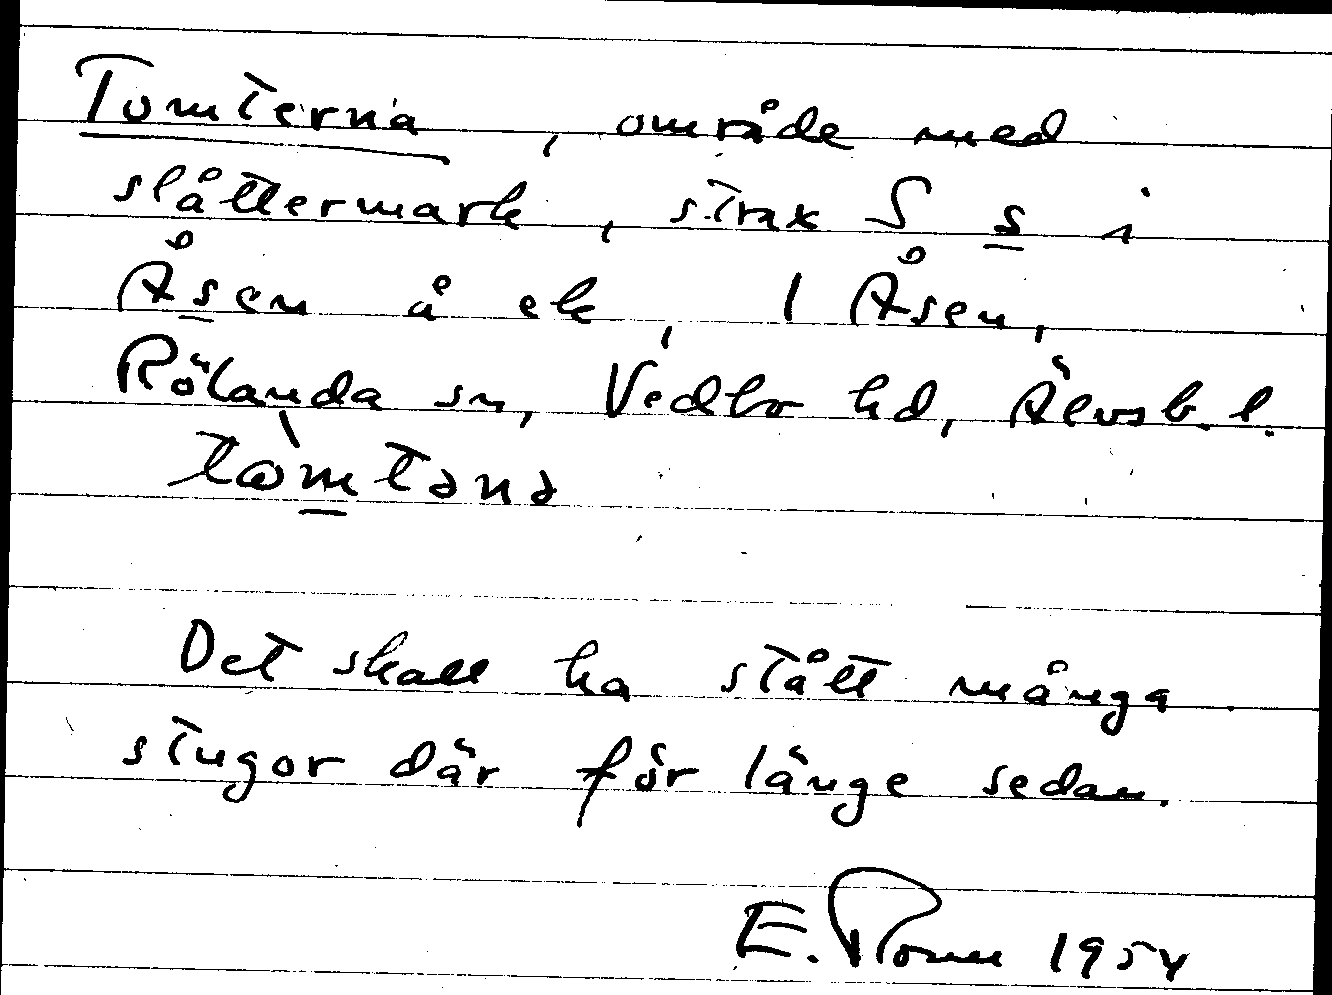 Tomterna, område med
slåttermark, strax S s i
Åsen å ek, 1 Åsen,
Rölanda sn, Vedbo hd, Älvsb. l.
tòmtənə
Det skall ha stått många
stugor där för länge sedan.
E. 1954